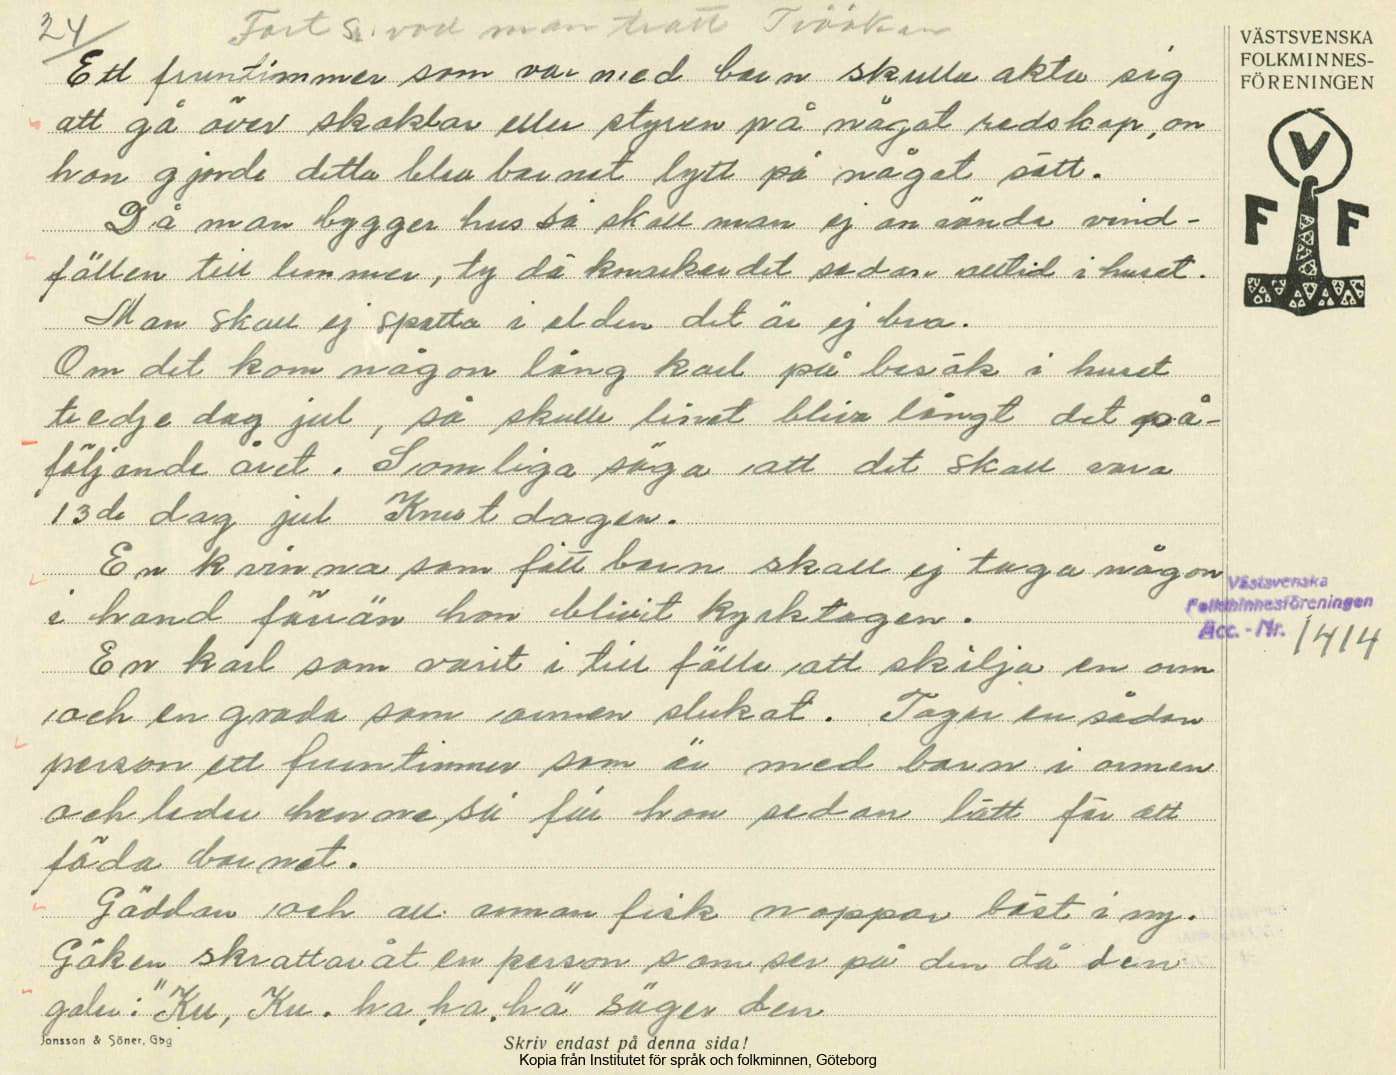 24
Forts. vad man trott Tvååker
VÄSTSVENSKA
FOLKMINNES-
FÖRENINGEN
V
F F
Ett fruntimmer som var med barn skulle akta sig
att gå över skaklar eller styren på något redskap, om
hon gjorde detta blev barnet lytt på något sätt.
Då man bygger hus så skall man ej använda vind-
fällen till timmer, ty då knackar det sedan alltid i huset.
Man skall ej spotta i elden det är ej bra.
Om det kom någon lång karl på besök i huset
tredje dag jul, så skulle linet bliva långt det på-
följande året. Somliga säga att det skall vara
13de dag jul Knut dagen.
En kvinna som fått barn skall ej taga någon
i hand förrän hon blivit kyrktagen.
Västsvenska
Folkminnesföreningen
Acc. - Nr. 1414
En karl som varit i tillfälle att skilja en orm
och en groda som ormen slukat. Tager en sådan
person ett fruntimmer som är med barn i armen
och leder henne så får hon sedan lätt för att
föda barnet.
Gäddan och all annan fisk nappar bäst i ny.
Göken skrattar åt en person som ser på den då den
galer: "Ku, Ku. ha, ha, hä" säger den
Jonsson & Söner, Gbg
Skriv endast på denna sida!
Kopia från Institutet för språk och folkminnen, Göteborg